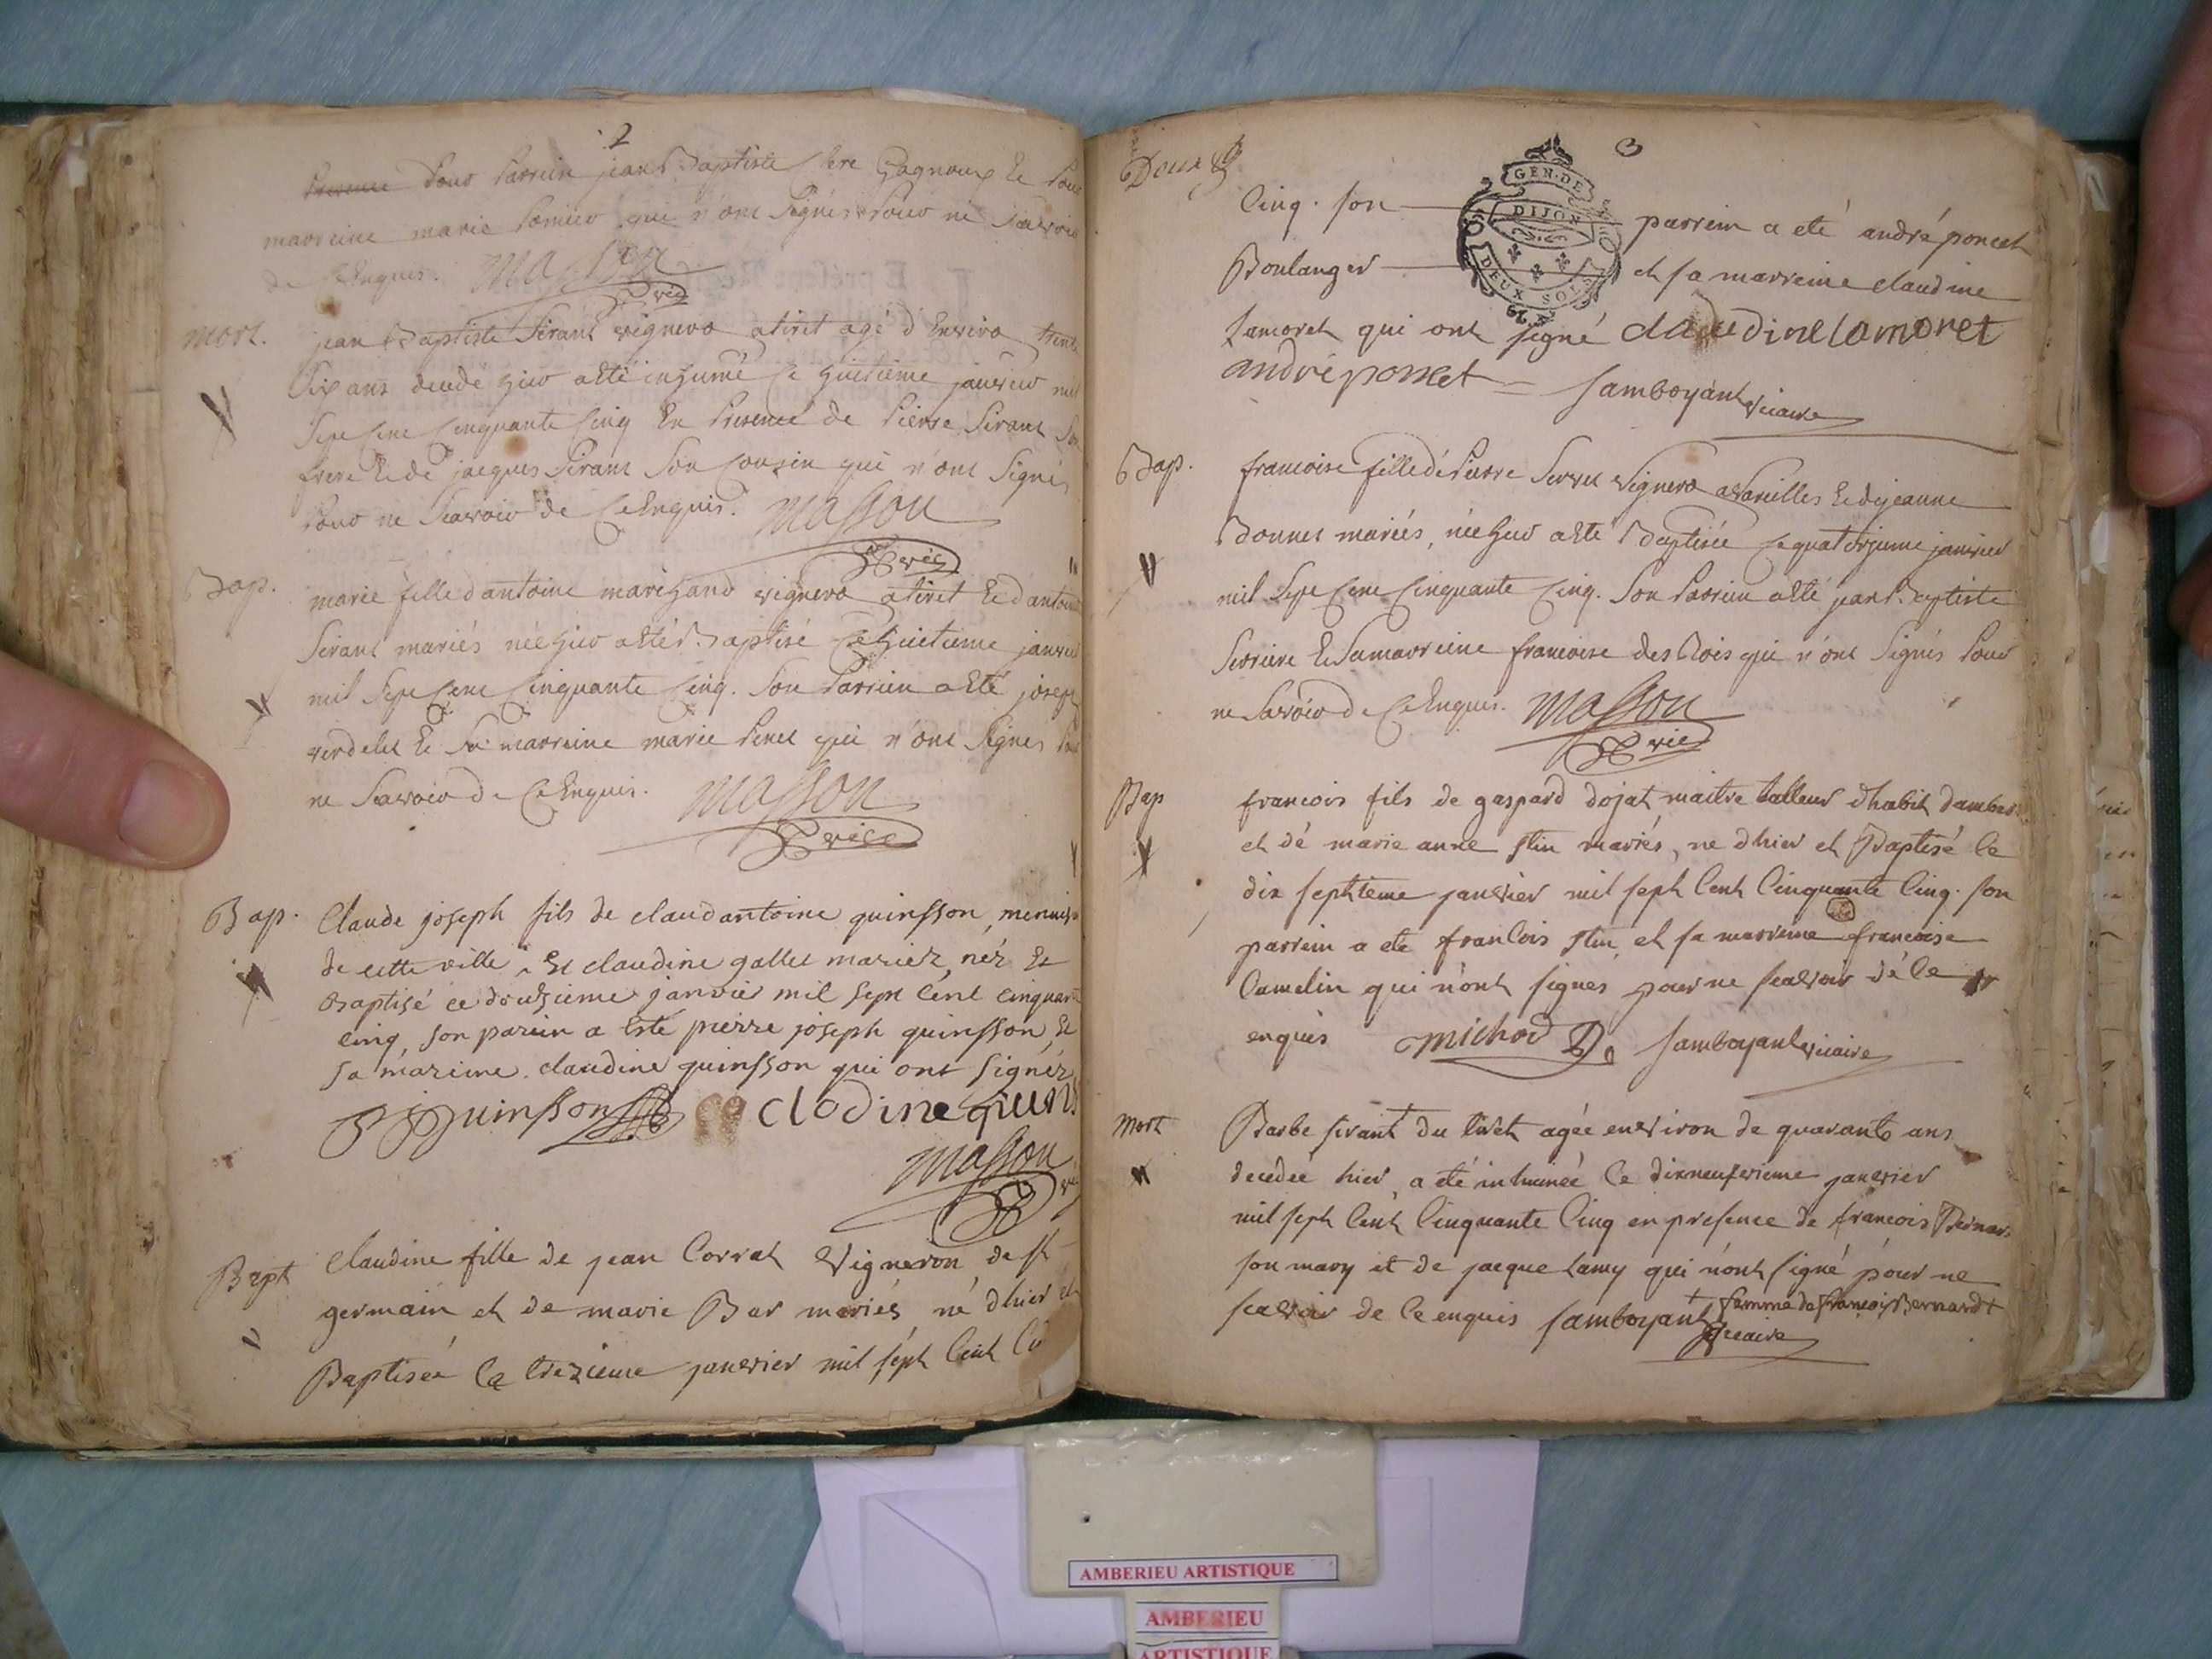 2
pour parrein jean Baptiste bere Gagneux Et pour
marreine marie pomier qui n'ont signés pour ne scavoir
de ce Enquis. Masson
vic
mort. jean Baptiste Sirant vigneron atiret agé d'Environ trente
Six ans decedé hier a Eté inhumé ce huitième janvier mil
Sept Cent Cinquante Cinq En presence de pierre Sirant Son
frere Et de jacques Sirant Son Cousin qui n'ont Signés
pour ne Scavoir de Ce Enquis. Masson
vic
Bap. marie fille d'antoine marchand vigneron atiret Et d'antoine
Sirant mariés née hier a Eté Baptisé Ce huitieme janvier
mil Sept Cent Cinquante Cinq. Son parrein a Eté joseph
verdelet Et Sa marreine marie penet qui n'ont Signés pour
ne Scavoir de Ce Enquis. Masson
vice
Bap. Claude joseph fils de claud antoine quinsson, menuis
de cette ville, Et claudine gallet mariez, néz Et
Baptisé ce douzieme janvier mil sept cent cinquante
cinq, son parein a Esté pierre joseph quinsson, Et
sa mareine. claudine quinsson qui ont signéz
PJ quinsson clodine quins
Masson
vic
Bapt Claudine fille de jean Corrat Vigneron de st
germain et de marie Bar mariés né d'hier et
Baptiseé Ce treizieme janvier mil sept Cent Ci
3
Doux
Cinq. son parrein a eté andré poncet
GEN. DE
DIJON
DEUX SOLS
Boulanger et sa marreine claudine
Lamoret qui ont signé claudine lamoret
andré poncet samboyant vicaire
Bap. francoise fille de pierre Servet vigneron a vareilles Et de jeanne
Bonnet mariés, née hier a Eté Baptisée Ce quatorzieme janvier
mil Sept Cent Cinquante Cinq. Son parrein a Eté jean Baptiste
Serriere Et Sa marreine francoise des Bois qui n'ont Signés pour
ne Savoir de Ce Enquis. Masson
vic
Bap francois fils de gaspard dojat maitre talleur d'habit d'amber
et dé marie anne stin mariés, ne d'hier et Baptisé le
dix septieme janvier mil sept Cent Cinquante Cinq. son
parrein a ete francois stin, et sa marreine francoise
Camelin qui n'ont signés pour ne scavoir dé Ce
enquis michod samboyant vicaire
Mort Barbe sirant du tiret agée environ de quarante ans
decedeé hier, a eté inhumeé Ce dixneufvieme janvier
mil sept Cent Cinquante Cinq en presence de francois Bernar
son mary et de jacque Lamy qui n'ont signé pour ne
scavoir de Ce enquis samboyant + famme de francois Bernard +
vicaire
AMBERIEU ARTISTIQUE
AMBERIEU
ARTISTIQUE